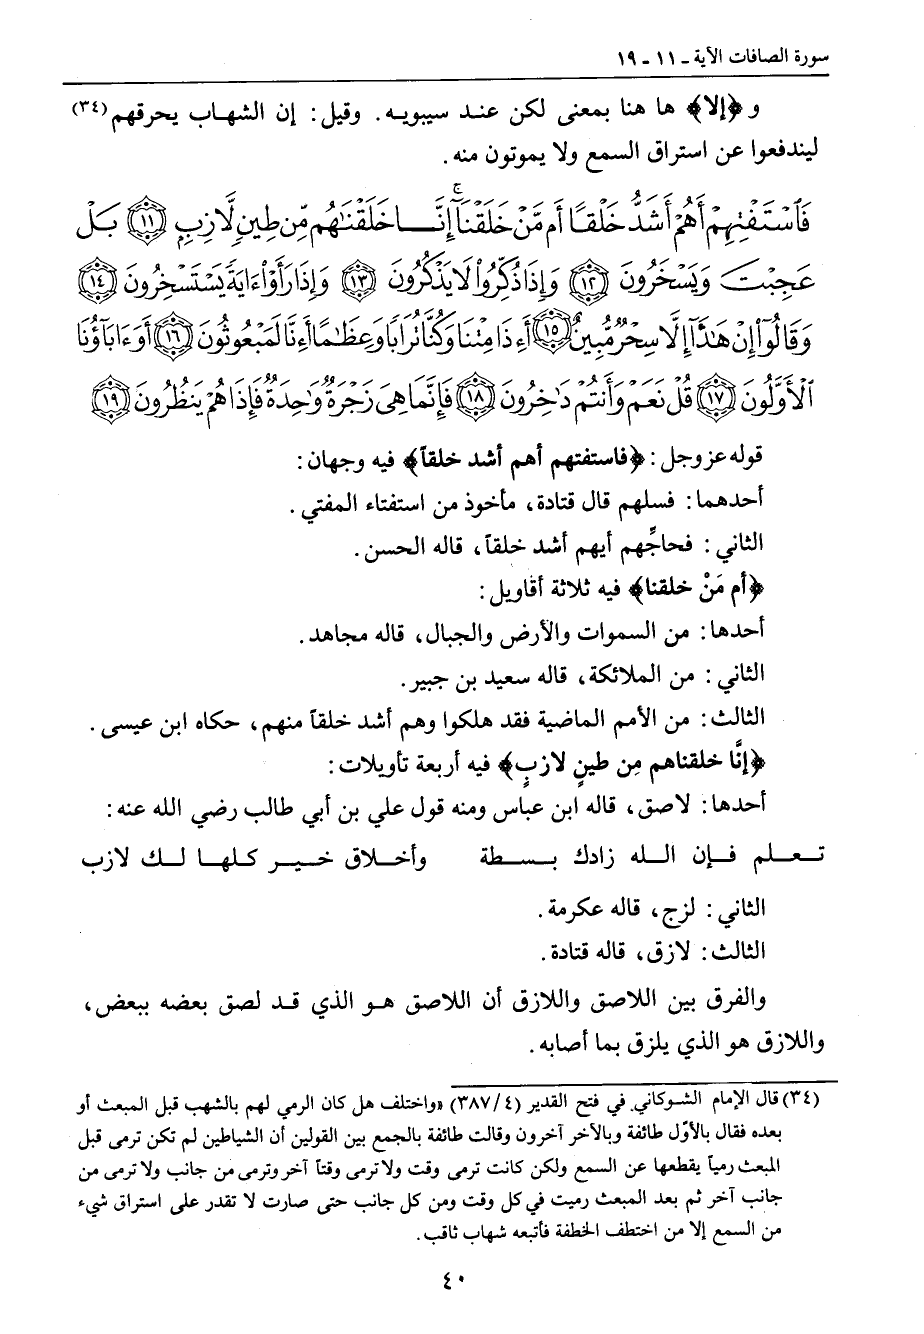 سورة الصافات الآية ـ ١١ ـ ١٩
و ﴿إلا﴾ ها هنا بمعنى لكن عند سيبويه. وقيل: إن الشهاب يحرقهم(٣٤)
ليندفعوا عن استراق السمع ولا يموتون منه.
فَٱسْتَفْتِهِمْ أَهُمْ أَشَدُّ خَلْقًا أَم مَّنْ خَلَقْنَآ إِنَّا خَلَقْنَٰهُم مِّن طِينٍ لَّازِبٍ ١١ بَلْ
عَجِبْتَ وَيَسْخَرُونَ ١٢ وَإِذَا ذُكِّرُوا۟ لَا يَذْكُرُونَ ١٣ وَإِذَا رَأَوْا۟ ءَايَةً يَسْتَسْخِرُونَ ١٤
وَقَالُوٓا۟ إِنْ هَٰذَآ إِلَّا سِحْرٌ مُّبِينٌ ١٥ أَءِذَا مِتْنَا وَكُنَّا تُرَابًا وَعِظَٰمًا أَءِنَّا لَمَبْعُوثُونَ ١٦ أَوَءَابَآؤُنَا
ٱلْأَوَّلُونَ ١٧ قُلْ نَعَمْ وَأَنتُمْ دَٰخِرُونَ ١٨ فَإِنَّمَا هِىَ زَجْرَةٌ وَٰحِدَةٌ فَإِذَا هُمْ يَنظُرُونَ ١٩
قوله عز وجل: ﴿فاستفتهم أهم أشد خلقاً﴾ فيه وجهان:
أحدهما: فسلهم قال قتادة، مأخوذ من استفتاء المفتي.
الثاني: فحاجِّهم أيهم أشد خلقاً، قاله الحسن.
﴿أم مَنْ خلقنا﴾ فيه ثلاثة أقاويل:
أحدها: من السموات والأرض والجبال، قاله مجاهد.
الثاني: من الملائكة، قاله سعيد بن جبير.
الثالث: من الأمم الماضية فقد هلكوا وهم أشد خلقاً منهم، حكاه ابن عيسى.
﴿إنَّا خلقناهم مِن طينٍ لازبٍ﴾ فيه أربعة تأويلات:
أحدها: لاصق، قاله ابن عباس ومنه قول علي بن أبي طالب رضي الله عنه:
تعلم فإن الله زادك بسطة وأخلاق خير كلها لك لازب
الثاني: لزج، قاله عكرمة.
الثالث: لازق، قاله قتادة.
والفرق بين اللاصق واللازق أن اللاصق هو الذي قد لصق بعضه ببعض،
واللازق هو الذي يلزق بما أصابه.
(٣٤) قال الإمام الشوكاني في فتح القدير (٣٨٧/٤) «واختلف هل كان الرمي لهم بالشهب قبل المبعث أو
بعده فقال بالأوّل طائفة وبالآخر آخرون وقالت طائفة بالجمع بين القولين أن الشياطين لم تكن ترمى قبل
المبعث رمياً يقطعها عن السمع ولكن كانت ترمى وقت ولا ترمى وقتاً آخر وترمى من جانب ولا ترمى من
جانب آخر ثم بعد المبعث رميت في كل وقت ومن كل جانب حتى صارت لا تقدر على استراق شيء
من السمع إلا من اختطف الخطفة فأتبعه شهاب ثاقب.
٤٠